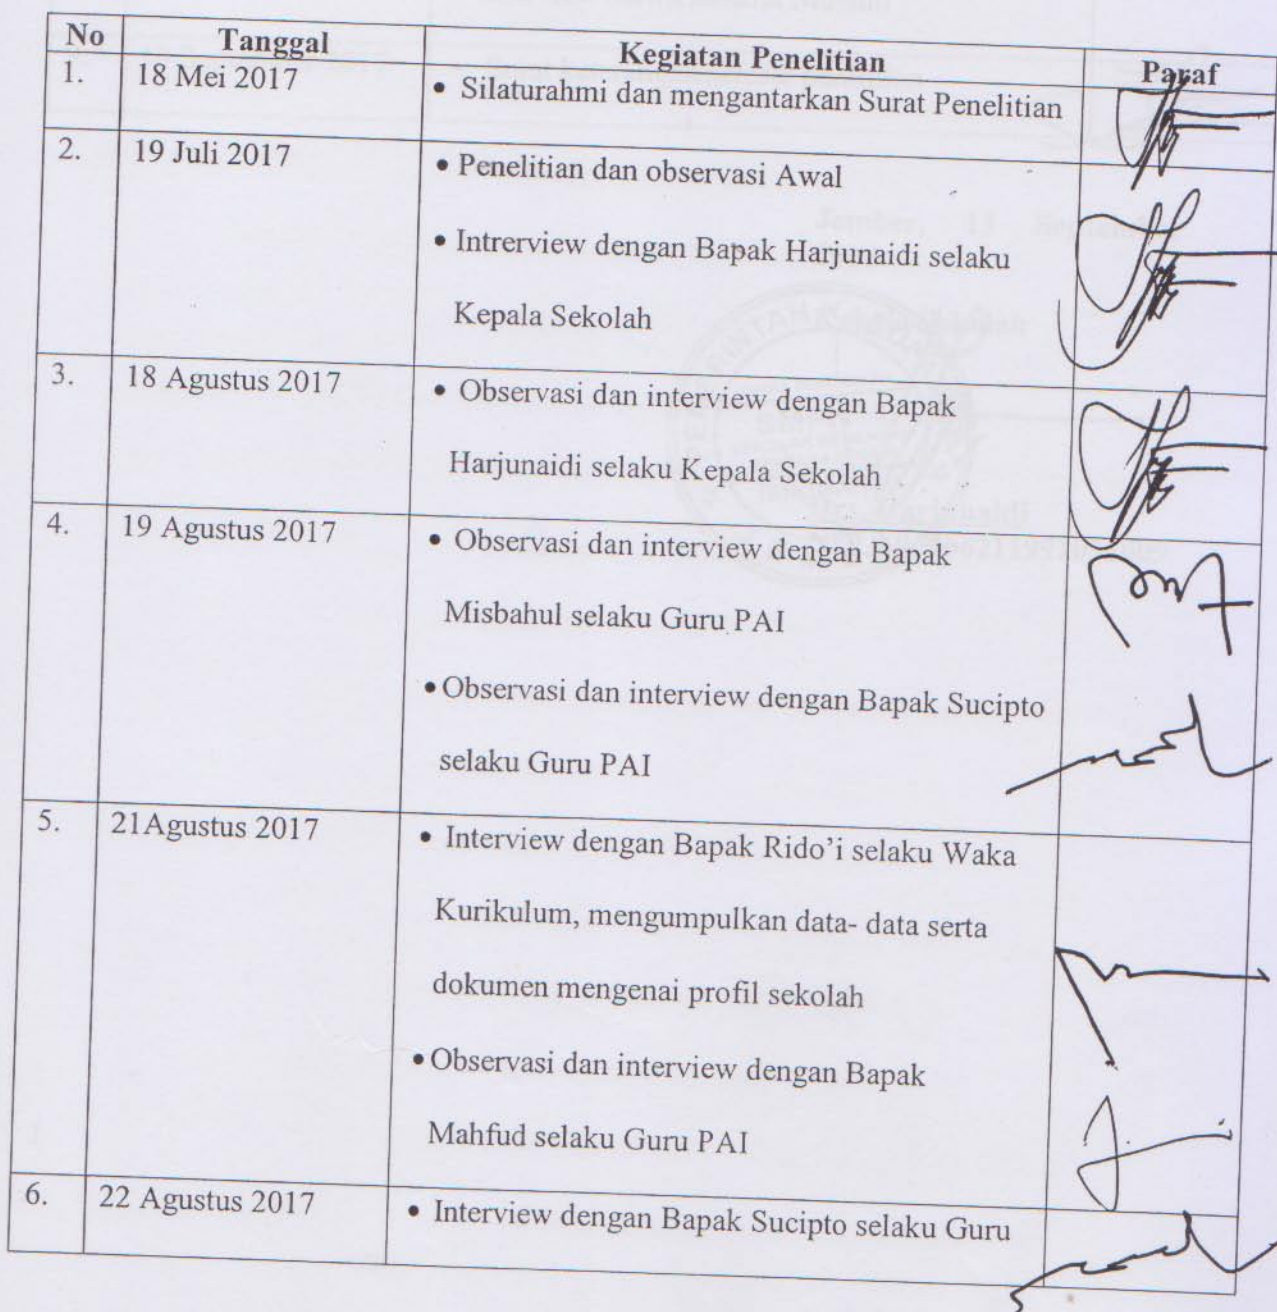 No Tanggal Kegiatan Penelitian Paraf
1. 18 Mei 2017 • Silaturahmi dan mengantarkan Surat Penelitian
2. 19 Juli 2017 • Penelitian dan observasi Awal
• Intrerview dengan Bapak Harjunaidi selaku
Kepala Sekolah
3. 18 Agustus 2017 • Observasi dan interview dengan Bapak
Harjunaidi selaku Kepala Sekolah
4. 19 Agustus 2017 • Observasi dan interview dengan Bapak
Misbahul selaku Guru PAI
• Observasi dan interview dengan Bapak Sucipto
selaku Guru PAI
5. 21Agustus 2017 • Interview dengan Bapak Rido'i selaku Waka
Kurikulum, mengumpulkan data- data serta
dokumen mengenai profil sekolah
• Observasi dan interview dengan Bapak
Mahfud selaku Guru PAI
6. 22 Agustus 2017 • Interview dengan Bapak Sucipto selaku Guru